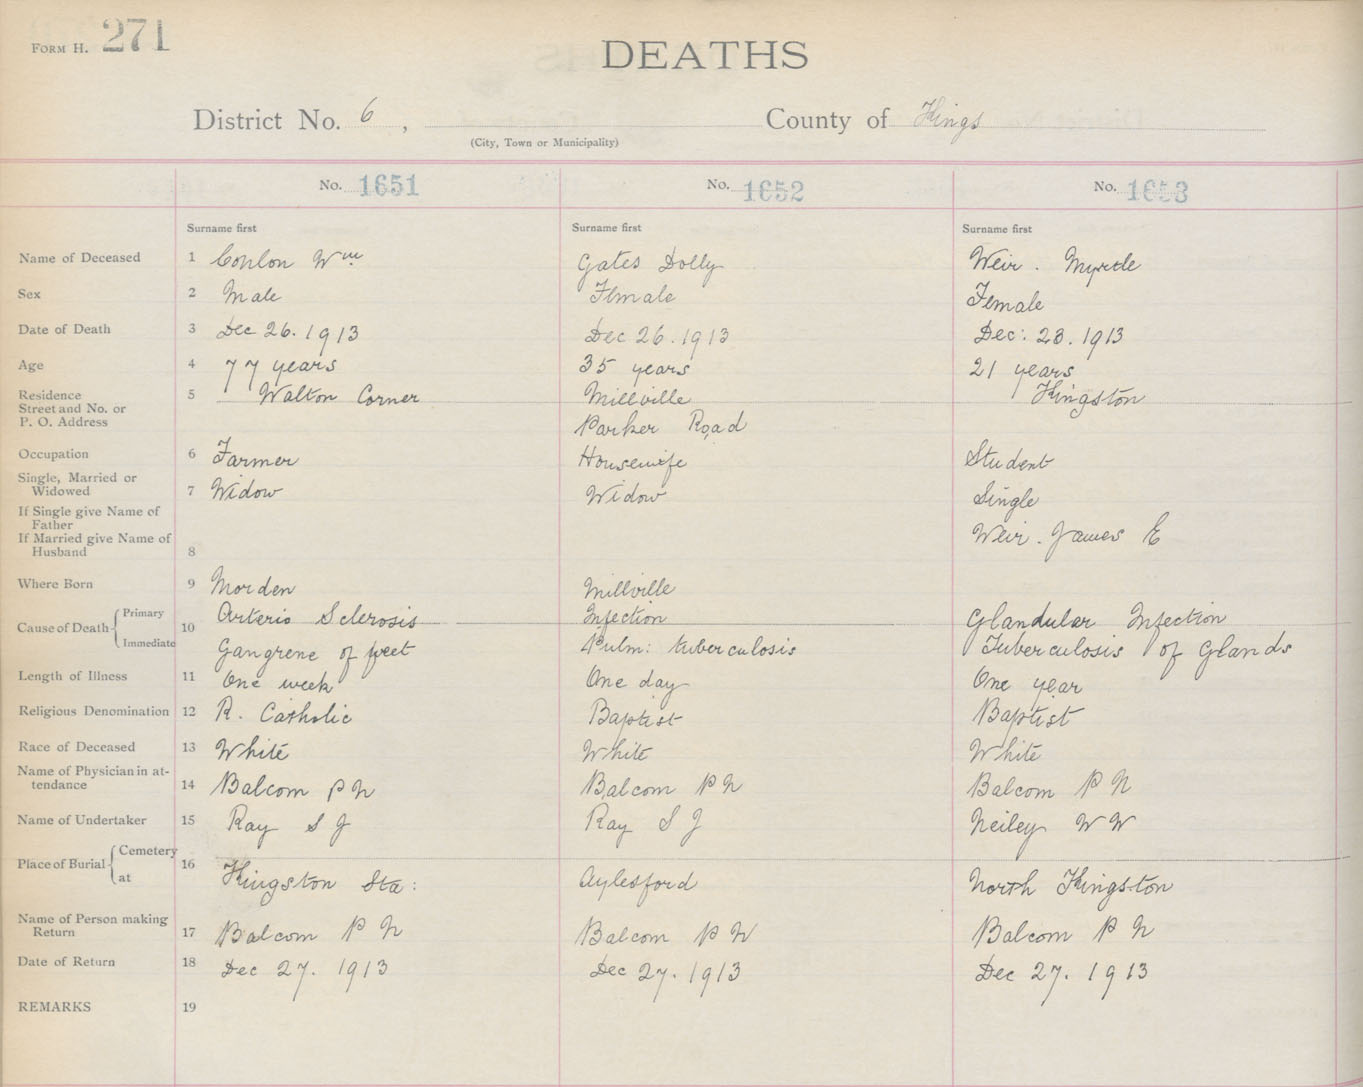 FORM H. 271
DEATHS
District No. 6, County of Kings
(City, Town or Municipality)
No. 1651 No. 1652 No. 1653
Surname first Surname first Surname first
Name of Deceased 1 Conlon Wm Gates Dolly Weir. Myrtle
Sex 2 Male Female Female
Date of Death 3 Dec 26. 1913 Dec 26. 1913 Dec: 28. 1913
Age 4 77 years 35 years 21 years
Residence 5 Walton Corner Millville Kingston
Street and No. or
P. O. Address Parker Road
Occupation 6 Farmer Housewife Student
Single, Married or
Widowed 7 Widow Widow Single
If Single give Name of
Father Weir. James E
If Married give Name of
Husband 8
Where Born 9 Morden Millville
Cause of Death 10 Primary Arterio Sclerosis Infection Glandular Infection
Immediate Gangrene of feet Pulm: tuberculosis Tuberculosis of Glands
Length of Illness 11 One week One day One year
Religious Denomination 12 R. Catholic Baptist Baptist
Race of Deceased 13 White White White
Name of Physician in at-
tendance 14 Balcom P N Balcom P N Balcom P N
Name of Undertaker 15 Ray S J Ray S J Neiley W W
Place of Burial 16 Cemetery
at Kingston Sta: Aylesford North Kingston
Name of Person making
Return 17 Balcom P N Balcom P N Balcom P N
Date of Return 18 Dec 27. 1913 Dec 27. 1913 Dec 27. 1913
REMARKS 19